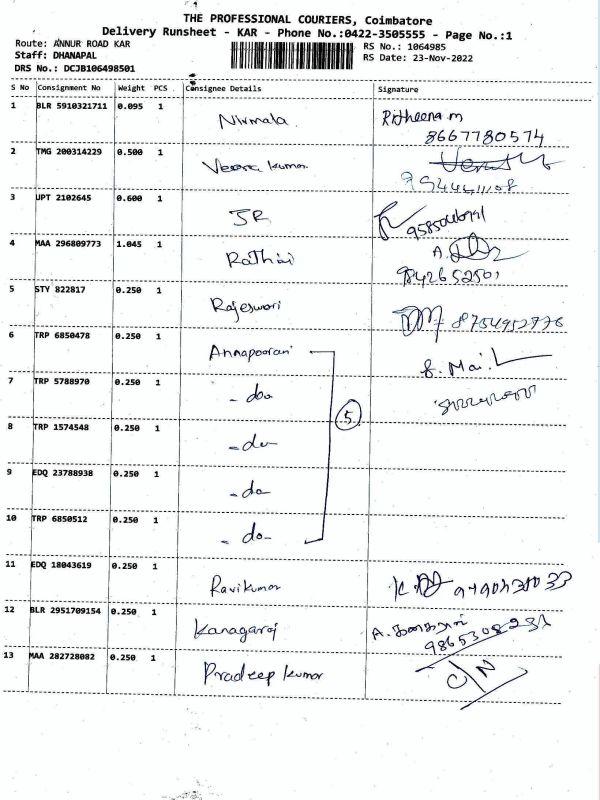 THE PROFESSIONAL COURIERS, Coimbatore
Delivery Runsheet - KAR - Phone No.:0422-3505555 - Page No.:1
Route: ANNUR ROAD KAR
RS No.: 1064985
Staff: DHANAPAL
RS Date: 23-Nov-2022
DRS No.: DCJB106498501
S No Consignment No Weight PCS Consignee Details Signature
1 BLR 5910321711 0.095 1 Nirmala
8667780574
2 TMG 200314229 0.500 1 Veera kumar
3 UPT 2102645 0.600 1 JR
4 MAA 296809773 1.045 1 Rathini
9842652501
5 STY 822817 0.250 1 Rajeswori
6 TRP 6850478 0.250 1 Annapoorani
7 TRP 5788970 0.250 1 - do
5
8 TRP 1574548 0.250 1 - do
9 EDQ 23788938 0.250 1 - do
10 TRP 6850512 0.250 1 - do-
11 EDQ 18043619 0.250 1 Ravikumar
12 BLR 2951709154 0.250 1 Kanagaraj A.
13 MAA 282728082 0.250 1 Pradeep kumar C/N